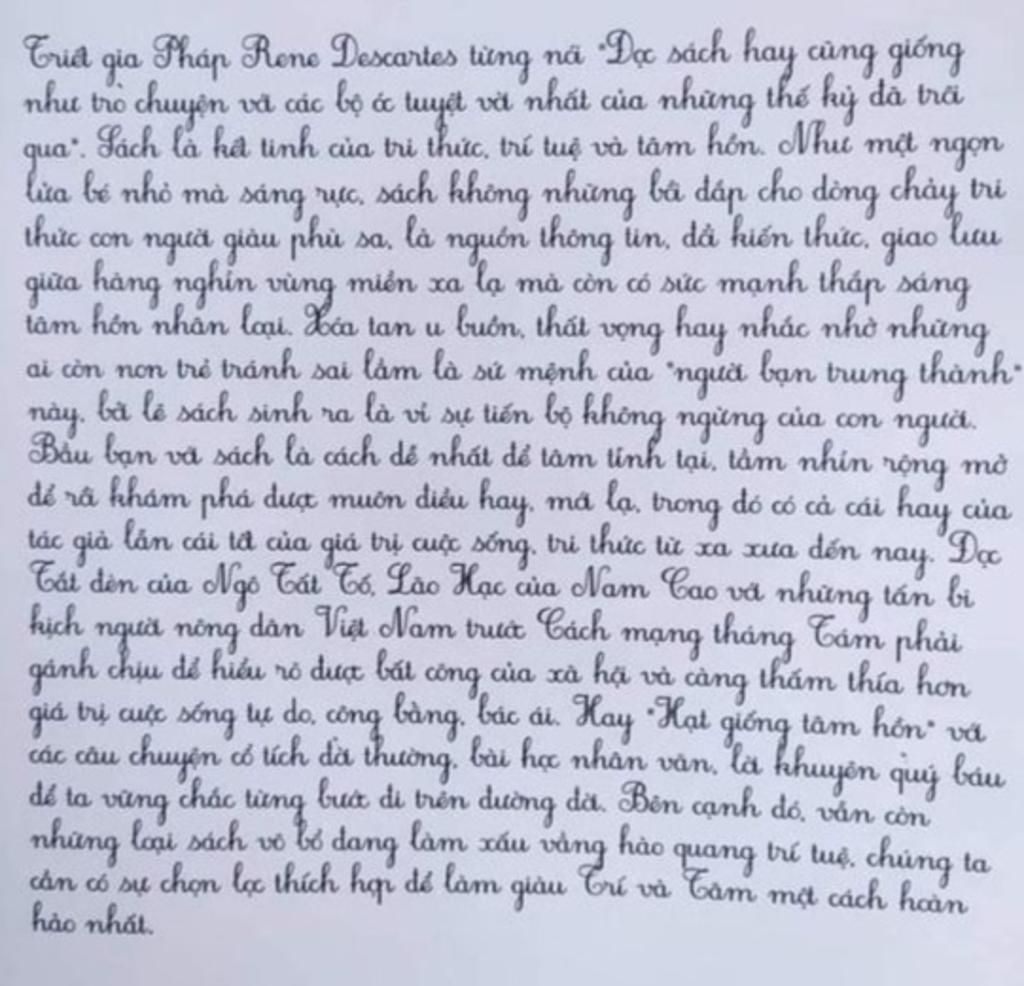 Triết gia Pháp Rene Descartes từng nói "Đọc sách hay cũng giống
như trò chuyện với các bộ óc tuyệt vời nhất của những thế kỷ đã trôi
qua". Sách là kết tinh của tri thức, trí tuệ và tâm hồn. Như một ngọn
lửa bé nhỏ mà sáng rực, sách không những bồi đắp cho dòng chảy tri
thức con người giàu phù sa, là nguồn thông tin, đổi kiến thức, giao lưu
giữa hàng nghìn vùng miền xa lạ mà còn có sức mạnh thắp sáng
tâm hồn nhân loại. Xóa tan u buồn, thất vọng hay nhắc nhở những
ai còn non trẻ tránh sai lầm là sứ mệnh của "người bạn trung thành"
này, bởi lẽ sách sinh ra là vì sự tiến bộ không ngừng của con người.
Bầu bạn với sách là cách dễ nhất để tâm tĩnh tại, tầm nhìn rộng mở
để rồi khám phá được muôn điều hay, mới lạ, trong đó có cả cái hay của
tác giả lẫn cái tốt của giá trị cuộc sống, tri thức từ xa xưa đến nay. Đọc
Tắt đèn của Ngô Tất Tố, Lão Hạc của Nam Cao với những tấn bi
kịch người nông dân Việt Nam trước Cách mạng tháng Tám phải
gánh chịu để hiểu rõ được bất công của xã hội và càng thấm thía hơn
giá trị cuộc sống tự do, công bằng, bác ái. Hay "Hạt giống tâm hồn" với
các câu chuyện cổ tích đời thường, bài học nhân văn, lời khuyên quý báu
để ta vững chắc từng bước đi trên đường đời. Bên cạnh đó, vẫn còn
những loại sách vô bổ đang làm xấu vầng hào quang trí tuệ, chúng ta
cần có sự chọn lọc thích hợp để làm giàu Trí và Tâm một cách hoàn
hảo nhất.